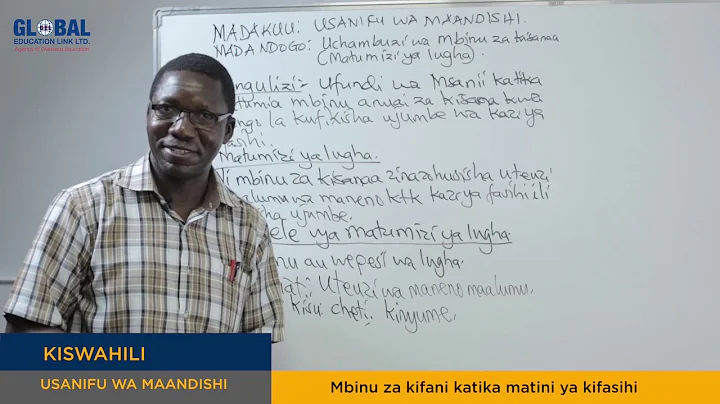 GLOBAL
EDUCATION LINK LTD.
Agents of Overseas Education
MADA KUU: USANIFU WA MAANDISHI.
MADA NDOGO: Uchambuzi wa mbinu za
(Matumizi ya lugha)
Ufundi wa Msanii katika
mbinu za kisanaa kwa
la kufikisha ujumbe wa kazi ya
matumizi ya lugha.
Ni mbinu za kisanaa zinazohusisha uteuzi
wa maneno ktk kazi ya fasihi ili
ujumbe.
vya matumizi ya lugha.
au wepesi wa lugha.
Uteuzi wa maneno maalumu.
kisu cheti. kinyume.
KISWAHILI
USANIFU WA MAANDISHI
Mbinu za kifani katika matini ya kifasihi